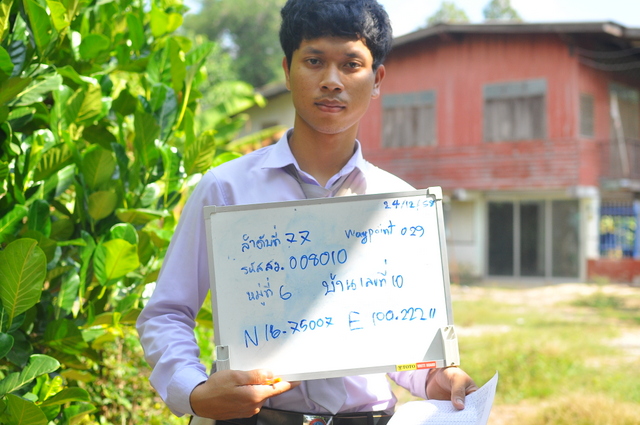 24/12/59
ลำดับที่ 77 waypoint 029
รหัสสว. 008010
หมู่ที่ 6 บ้านเลขที่ 10
N 16.75007 E 100.22211